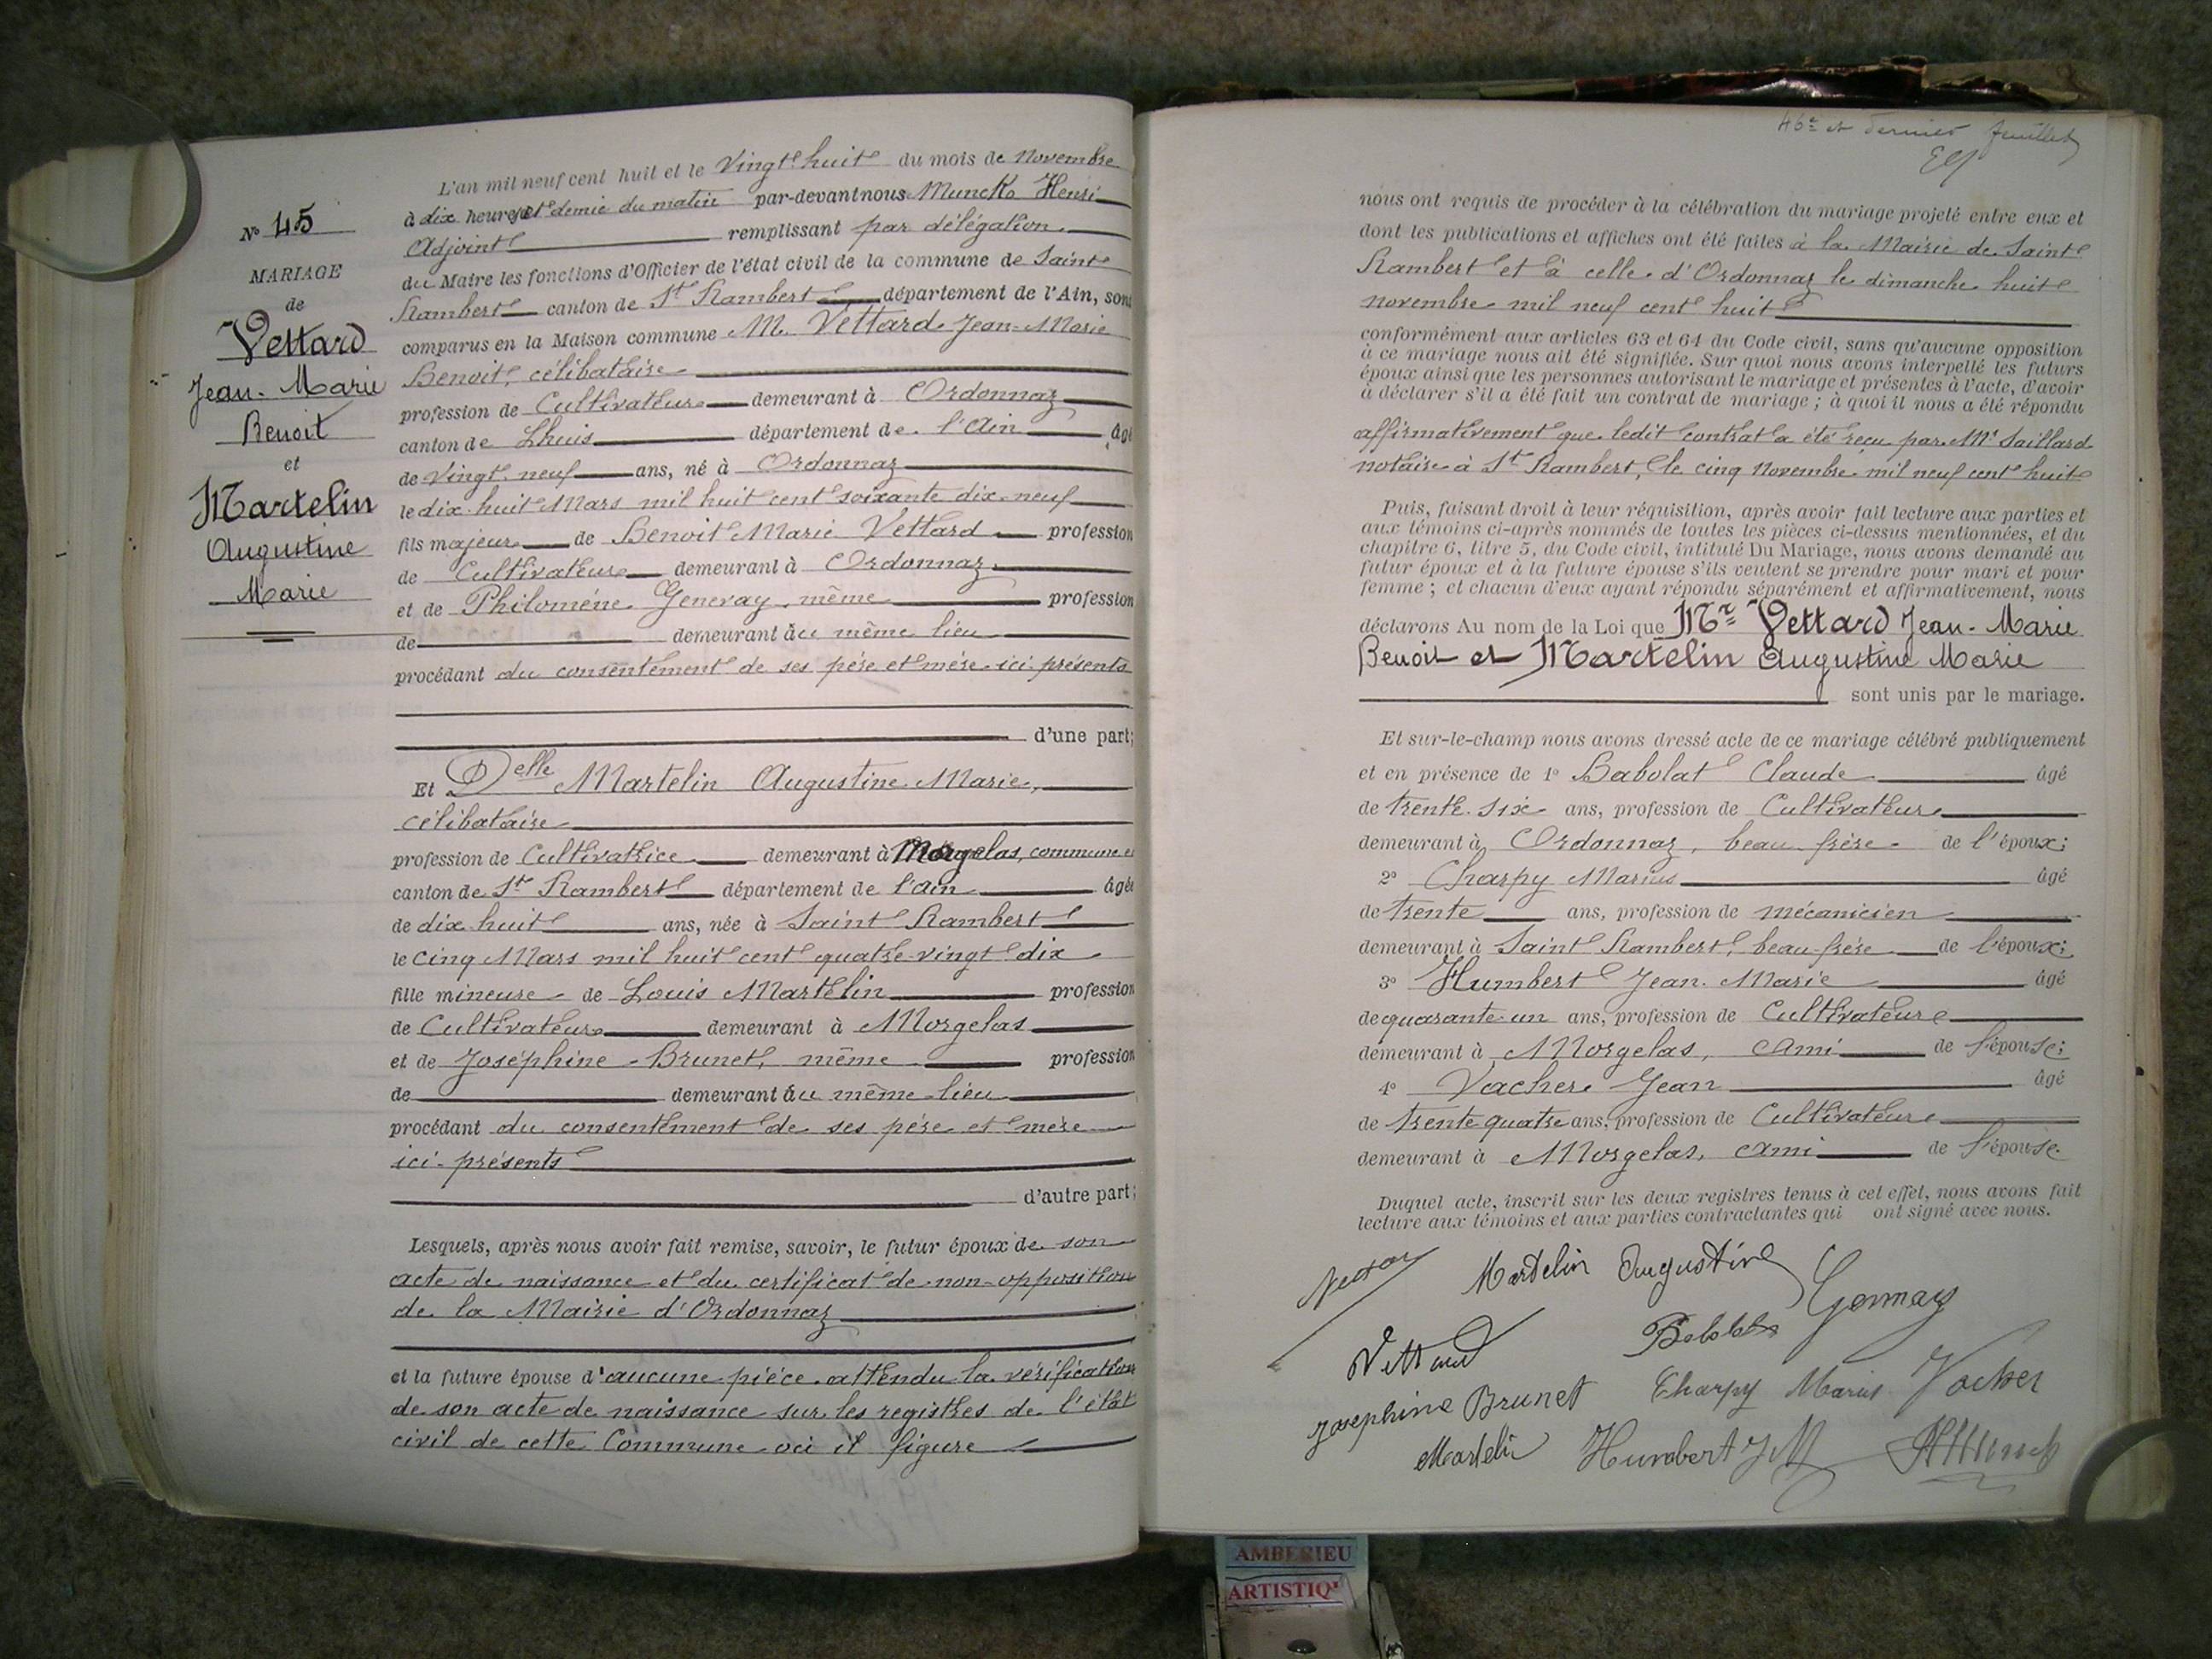 N° 45
MARIAGE
de
Vettard
Jean-Marie
Benoit
et
Martelin
Augustine
Marie
L'an mil neuf cent huit et le Vingt huit du mois de Novembre
à dix heures et demie du matin par-devant nous Munck Henri
Adjoint remplissant par délégation
du Maire les fonctions d'Officier de l'état civil de la commune de Saint
Rambert canton de St Rambert département de l'Ain, sont
comparus en la Maison commune M. Vettard Jean-Marie
Benoit, célibataire
profession de Cultivateur demeurant à Ordonnaz
canton de Lhuis département de l'Ain âgé
de Vingt neuf ans, né à Ordonnaz
le dix huit Mars mil huit cent soixante dix-neuf
fils majeur de Benoit Marie Vettard profession
de Cultivateur demeurant à Ordonnaz
et de Philomène Genevay, même profession
de demeurant au même lieu
procédant du consentement de ses père et mère ici présents
d'une part;
Et Delle Martelin Augustine Marie,
célibataire
profession de Cultivatrice demeurant à Morgelas, commune et
canton de St Rambert département de l'Ain âgée
de dix huit ans, née à Saint Rambert
le cinq Mars mil huit cent quatre-vingt dix
fille mineure de Louis Martelin profession
de Cultivateur demeurant à Morgelas
et de Joséphine Brunet, même profession
de demeurant au même lieu
procédant du consentement de ses père et mère
ici-présents
d'autre part;
Lesquels, après nous avoir fait remise, savoir, le futur époux de son
acte de naissance et du certificat de non-opposition
de la Mairie d'Ordonnaz
et la future épouse d'aucune pièce attendu la vérification
de son acte de naissance sur les registres de l'état
civil de cette Commune où il figure
46e et dernier feuillet
nous ont requis de procéder à la célébration du mariage projeté entre eux et
dont les publications et affiches ont été faites à la Mairie de Saint
Rambert et à celle d'Ordonnaz le dimanche huit
novembre mil neuf cent huit
conformément aux articles 63 et 64 du Code civil, sans qu'aucune opposition
à ce mariage nous ait été signifiée. Sur quoi nous avons interpellé les futurs
époux ainsi que les personnes autorisant le mariage et présentes à l'acte, d'avoir
à déclarer s'il a été fait un contrat de mariage; à quoi il nous a été répondu
affirmativement que ledit contrat a été reçu par Me Saillard
notaire à St Rambert, le cinq Novembre mil neuf cent huit
Puis, faisant droit à leur réquisition, après avoir fait lecture aux parties et
aux témoins ci-après nommés de toutes les pièces ci-dessus mentionnées, et du
chapitre 6, titre 5, du Code civil, intitulé Du Mariage, nous avons demandé au
futur époux et à la future épouse s'ils veulent se prendre pour mari et pour
femme; et chacun d'eux ayant répondu séparément et affirmativement, nous
déclarons Au nom de la Loi que Mr Vettard Jean-Marie
Benoit et Martelin Augustine Marie
sont unis par le mariage.
Et sur-le-champ nous avons dressé acte de ce mariage célébré publiquement
et en présence de 1° Babolat Claude âgé
de trente six ans, profession de Cultivateur
demeurant à Ordonnaz, beau-frère de l'époux;
2° Charpy Marius âgé
de trente ans, profession de mécanicien
demeurant à Saint Rambert, beau-frère de l'époux;
3° Humbert Jean-Marie âgé
de quarante-un ans, profession de Cultivateur
demeurant à Morgelas, ami de l'épouse;
4° Vacher Jean âgé
de trente quatre ans, profession de Cultivateur
demeurant à Morgelas, ami de l'épouse.
Duquel acte, inscrit sur les deux registres tenus à cet effet, nous avons fait
lecture aux témoins et aux parties contractantes qui ont signé avec nous.
Martelin Augustine
Vettard
Josephine Brunet Charpy Marius Vacher
Martelin Humbert JM HMunck
AMBERIEU
ARTISTIQ